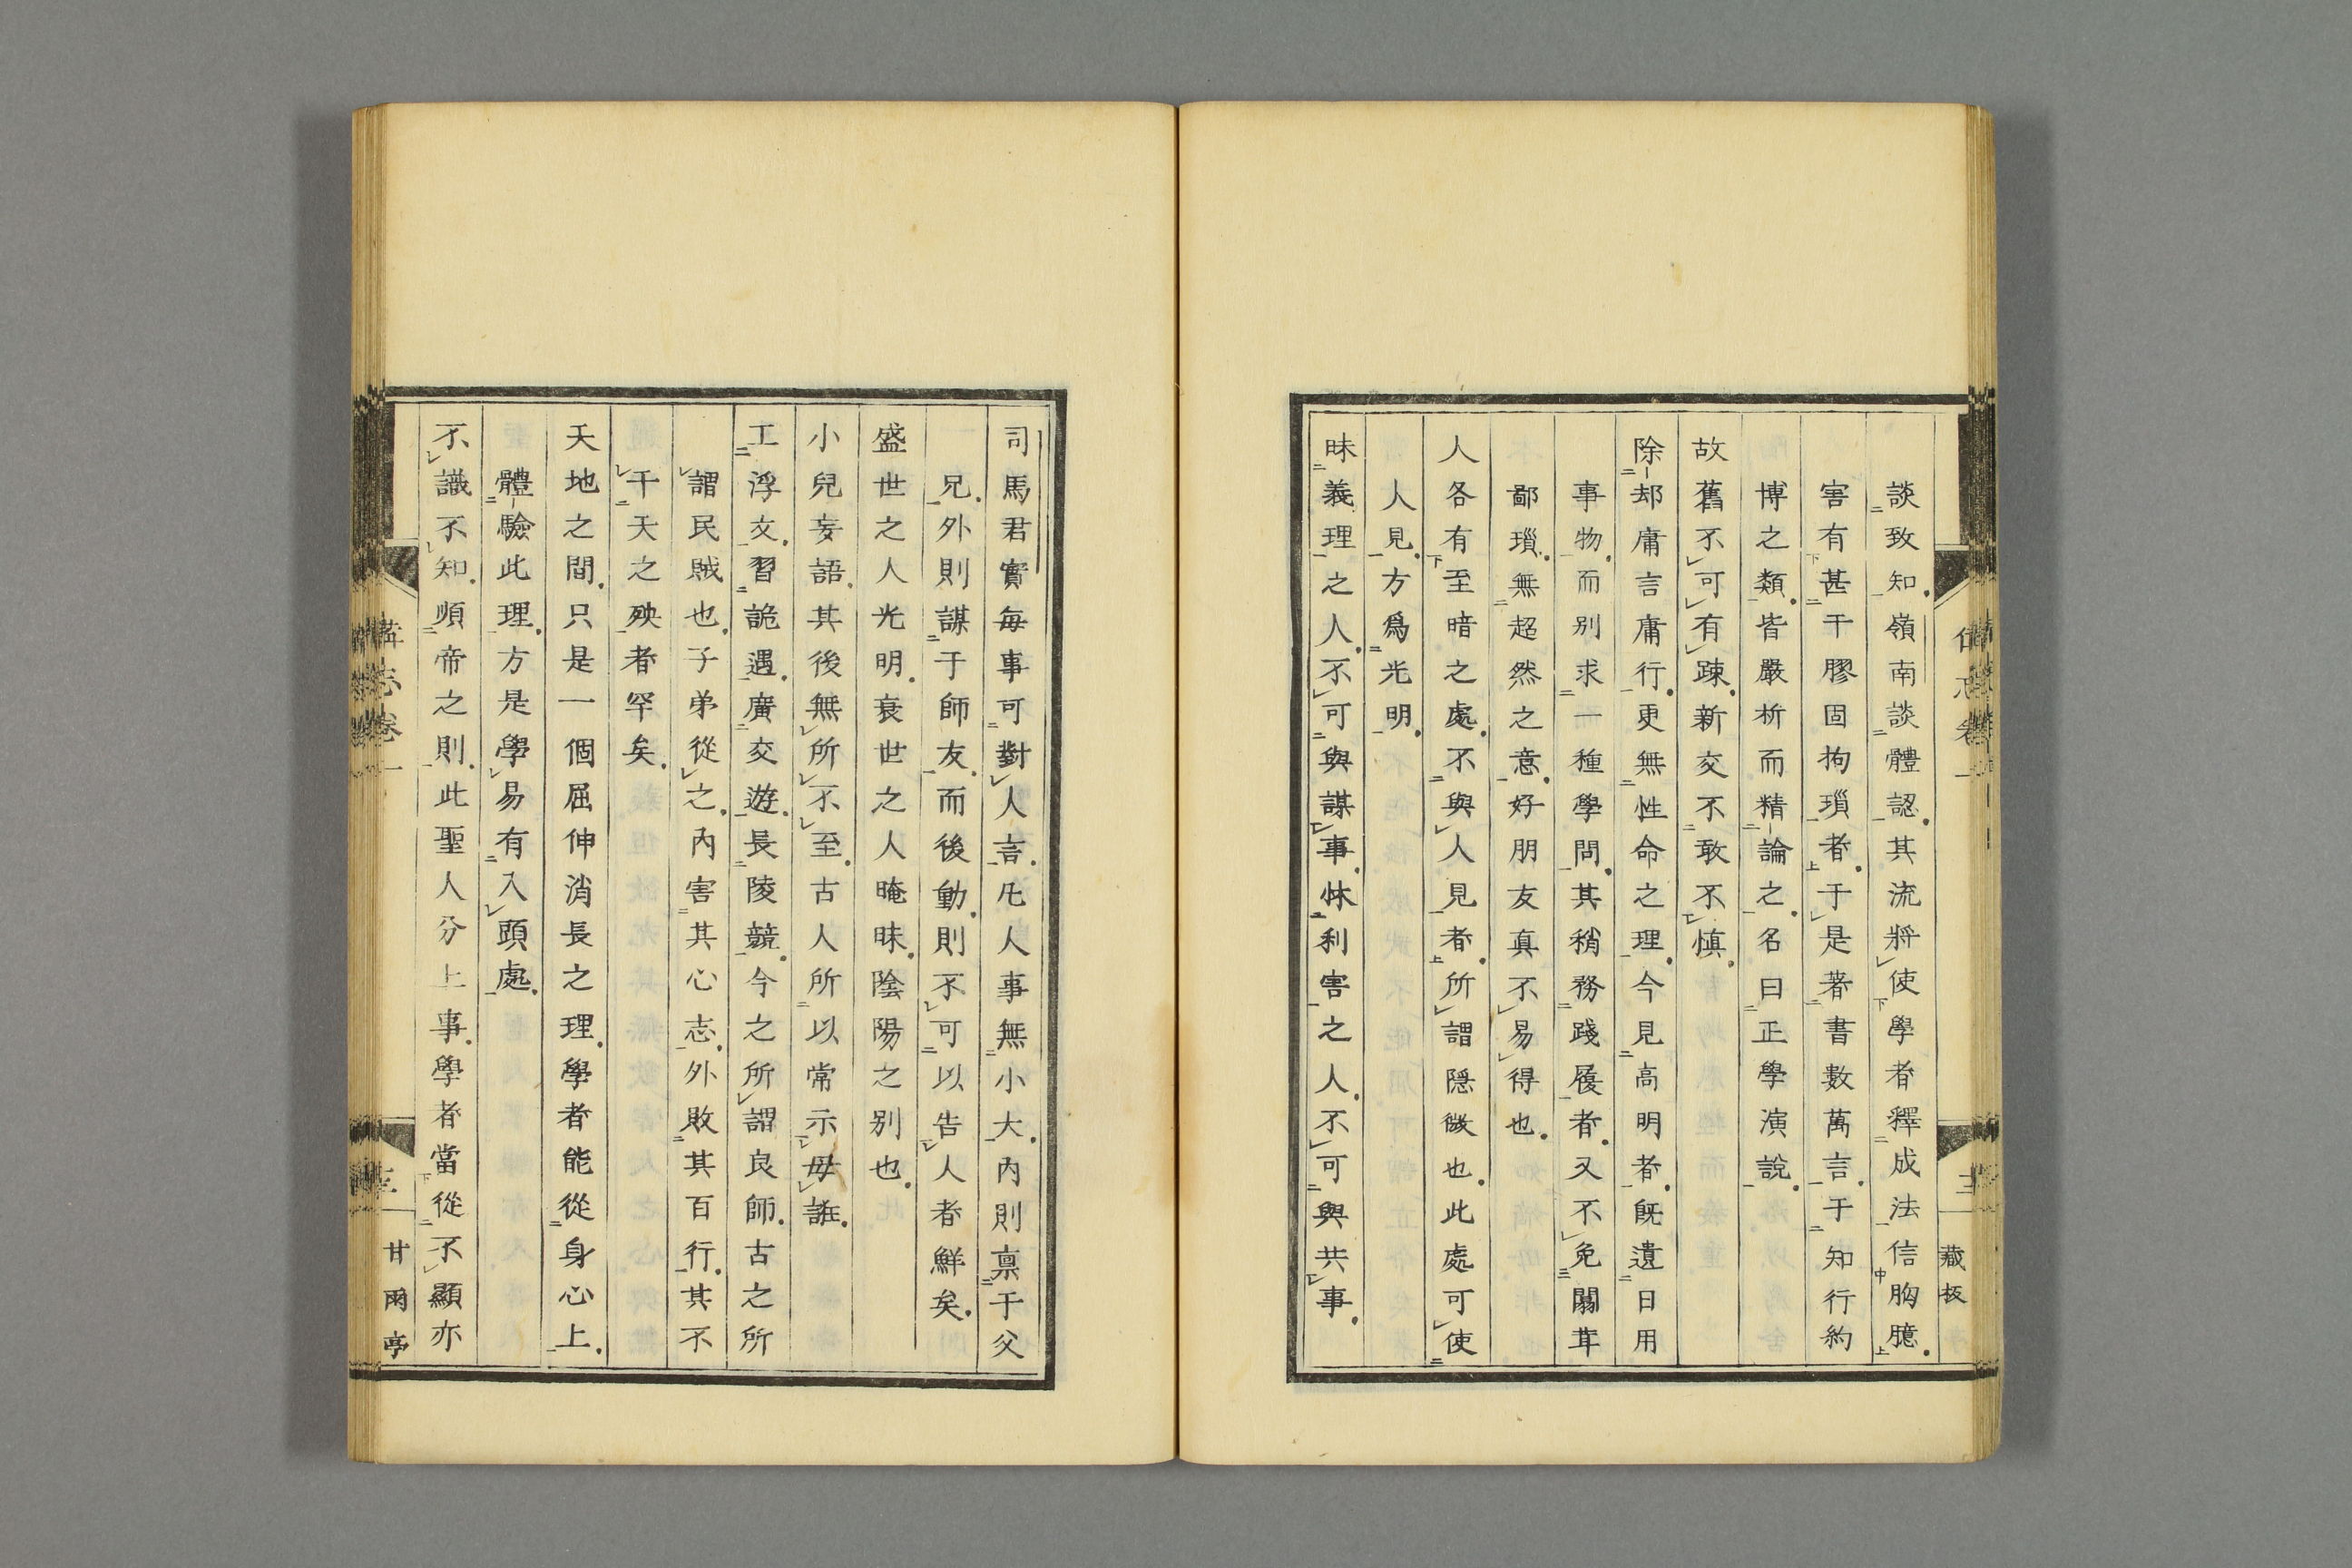 談致知嶺南談體認其流將使學者釋成法信胸臆
害有甚于膠固拘瑣者于是著書數萬言于知行約
博之類皆嚴析而精論之名曰正學演說
故舊不可有疎新交不敢不慎
除却庸言庸行更無性命之理今見高明者既遺日用
事物而別求一種學問其稍務踐履者又不免闒茸
鄙瑣無超然之意好朋友真不易得也
人各有至暗之處不與人見者所謂隱微也此處可使
人見方爲光明
昧義理之人不可與謀事怵利害之人不可與共事
司馬君實每事可對人言凡人事無小大內則禀于父
兄外則謀于師友而後動則不可以告人者鮮矣
盛世之人光明衰世之人晻昧陰陽之別也
小兒妄語其後無所不至古人所以常示毋誑
工浮文習詭遇廣交遊長陵競今之所謂良師古之所
謂民賊也子弟從之內害其心志外敗其百行其不
干天之殃者罕矣
天地之間只是一個屈伸消長之理學者能從身心上
體驗此理方是學易有入頭處
不識不知順帝之則此聖人分上事學者當從不顯亦
志卷一
甘雨亭
藏板